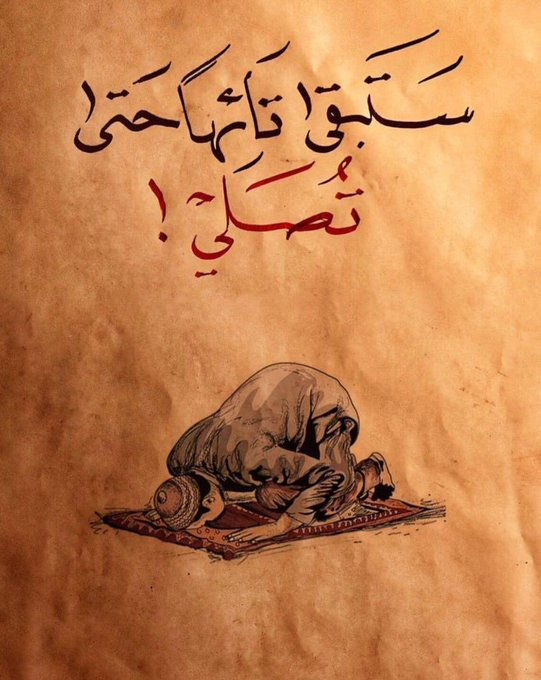 سَتَبقىٰ تَائِهاً حَتىٰ
تُصَلي !